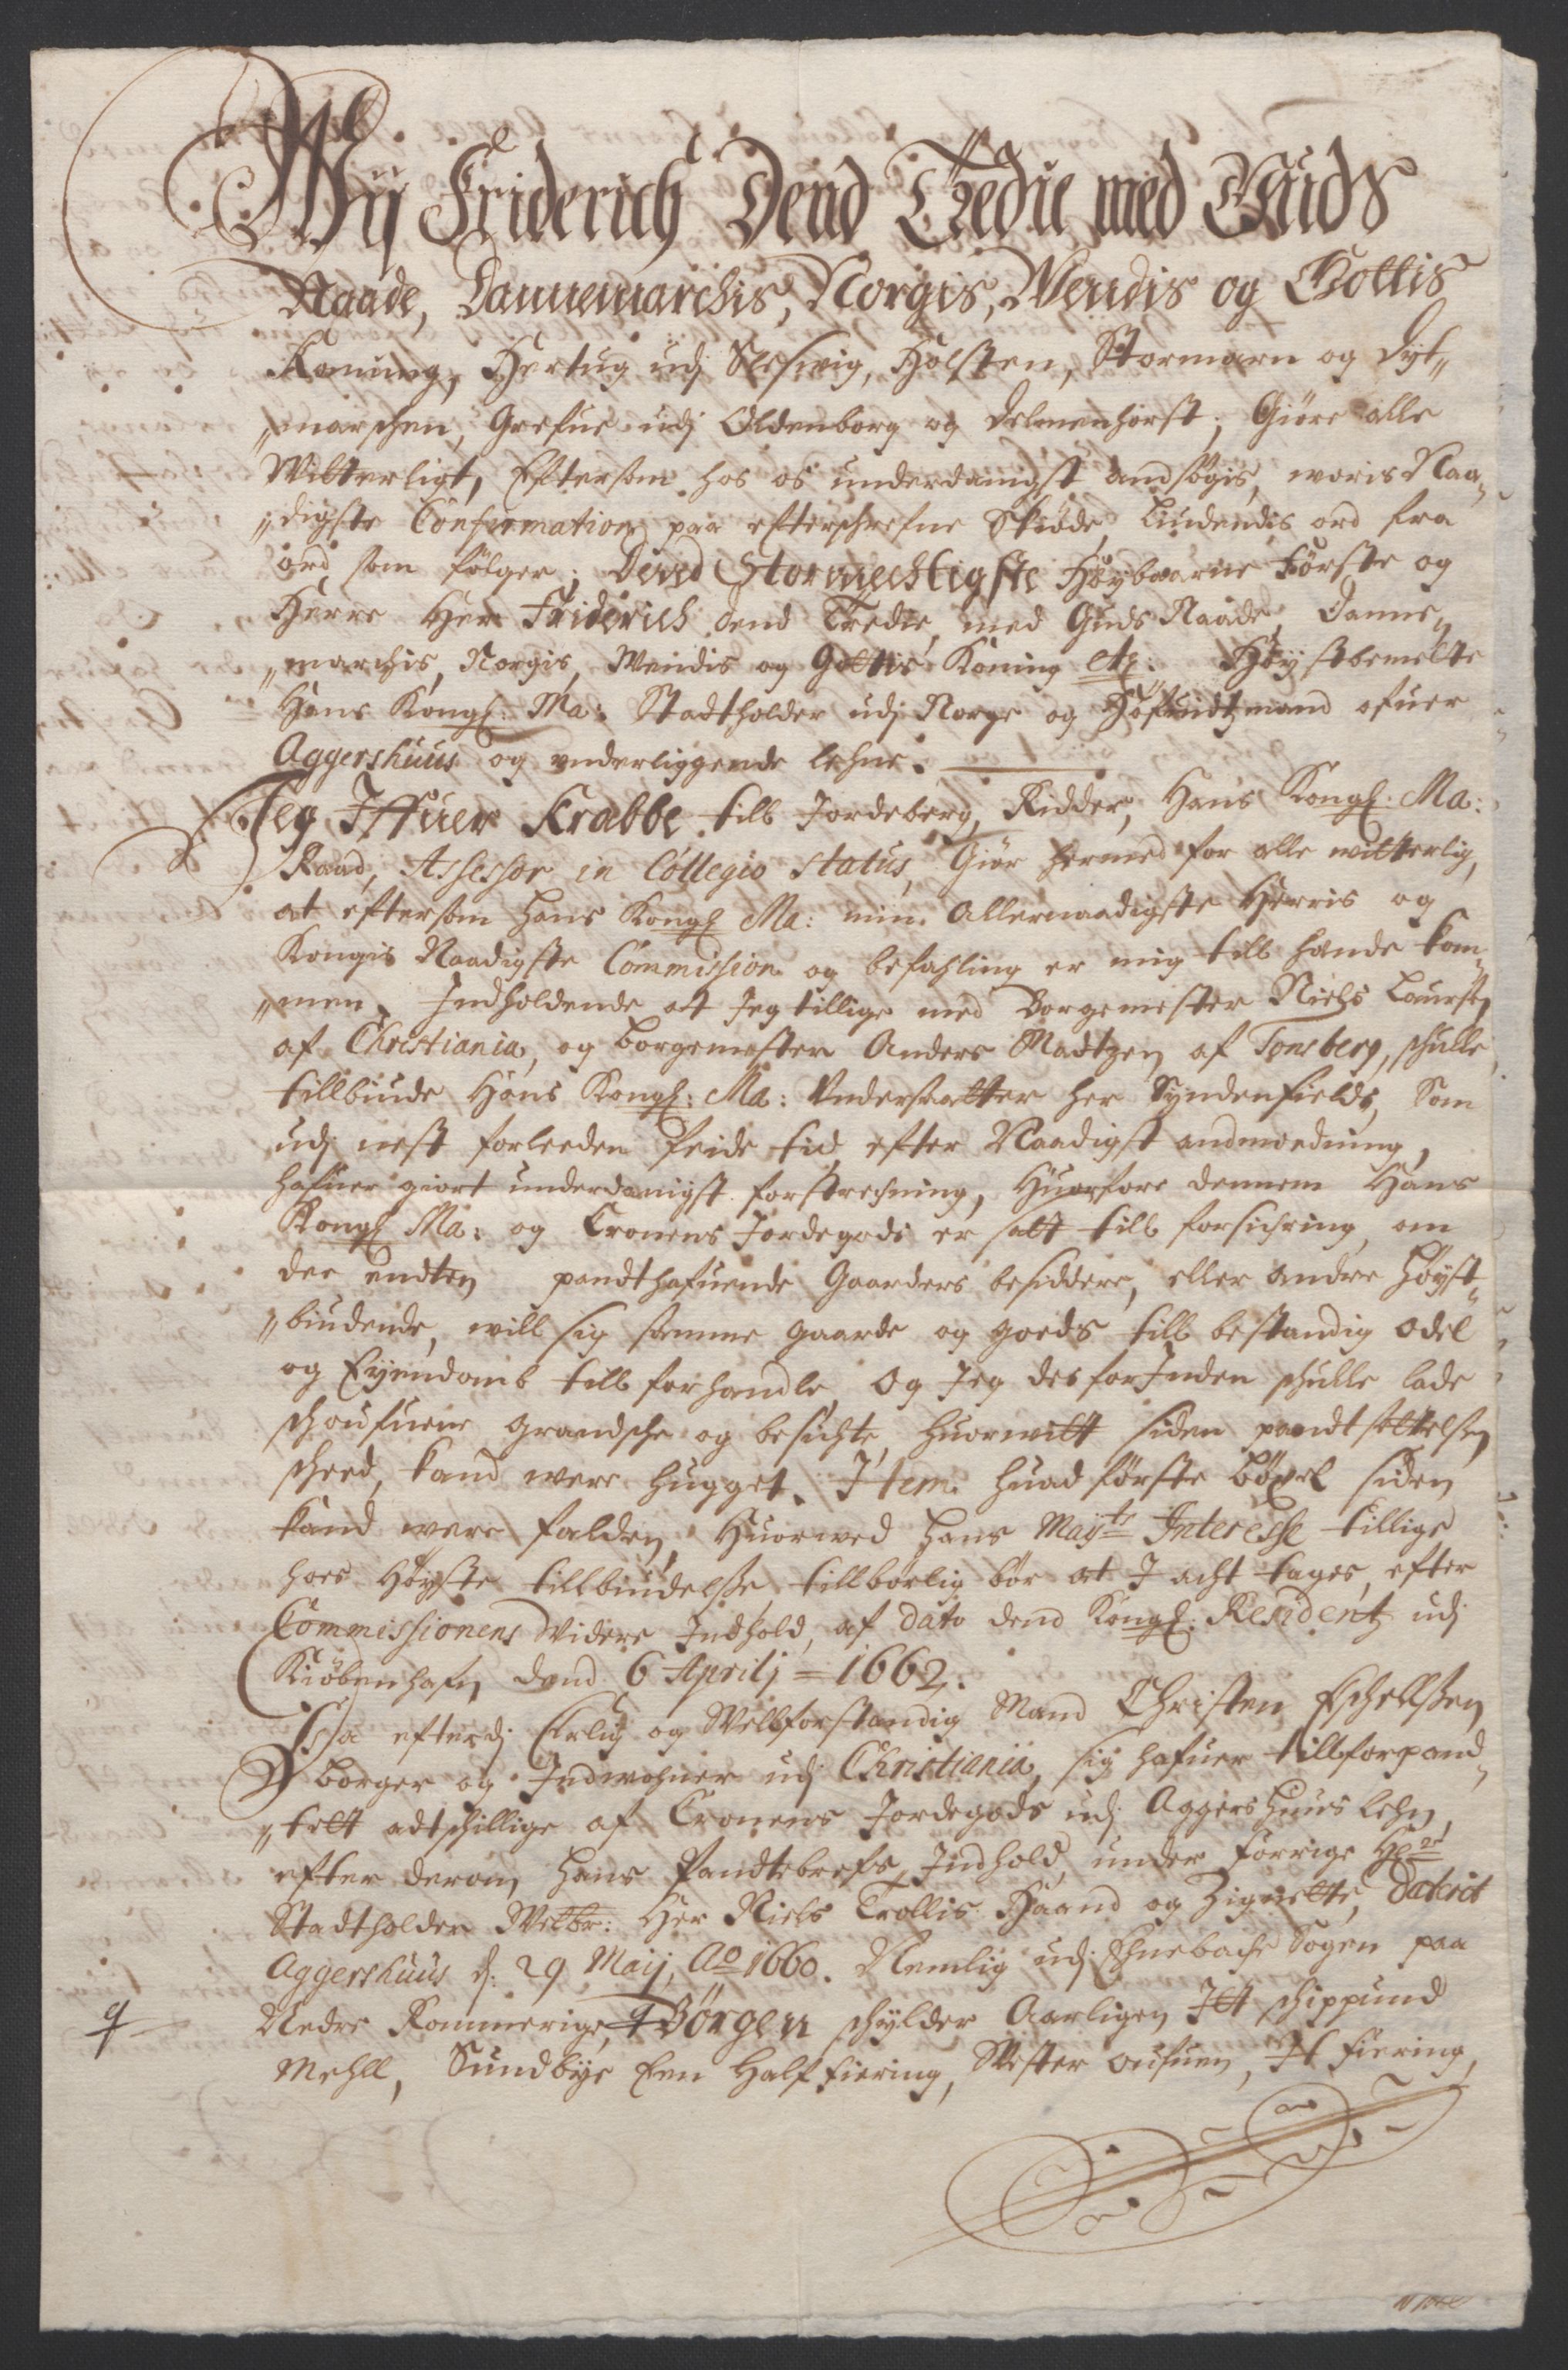 Wij Friderich Dend Tredie med Guds
Naade, Dannemarchis, Norgis, Wendis og Gottis
Konning, Hertug udj Sleswig, Holsten, Stormarn og Dyt„
„marschen, Grefue udj Oldenborg og Delmenhorst; Giöre alle
Witterligt, Eftersom hos os underdanigst andsögis, woris Naa„
„digste Confirmation paa efterschrefne Skiöde, Liudendis ord fra
ord som fölger; Dend Stormechtigste Höybaarne Förste og
Herre Her Friderich dend Tredie, med Guds Naade, Danne„
„marchis, Norgis, Wendis og Gottis Koning etc: Höystbemelte
Hans Kongl: Ma: Stadtholder udj Norge og Höfuidtzmand ofuer
Aggershuus og underliggende Lehne.
Jeg Iffuer Krabbe till Jordeberg, Ridder, Hans Kongl: Ma:
Raad, Assessor in Collegio Status, Giör hermed for alle witterlig,
at eftersom Hans Kongl Ma: min Allernaadigste Herris og
Kongis Naadigste Commission og befahling er mig till hande kom„
„men, Indholdende at Jeg tillige med Borgemester Niels Laursen
af Christiania, og Borgemester Anders Madtzen af Tonsberg, schulle
tillbiude Hans Kongl: Ma: Undersaatter her Syndenfields, Som
udj nest forleeden feide tid efter Naadigst andmodning,
hafuer giort underdanigst forstrechning, Huorfore dennem Hans
Kongl Ma: og Cronens Jordegods er satt till forsichring, om
dee endten pandthafuende Gaarders besiddere, eller andre Höyst„
„biudende, will sig samme gaarde og goeds till bestandig odel
og Eyendomb till forhandle, Og Jeg des forInden schulle lade
schoufuene grandsche og besichte, huorwitt siden pandtsettelsen
scheed, kand were hugget. Item huad förste böxel siden
kand were falden, Huorwed hans Mayts Interesse tillige
hoes Höyste tillbiudelse tillbörlig bör at I acht tages, efter
Commissionens Widere Indhold, af dato dend Kongl: Residentz udj
Kiöbenhafn dend 6 Aprilj = 1662.
Saa efterdj Erlig og Wellforstandig Mand Christen Eschelssen
borger og Indwohner udj Christiania, sig hafuer tillforpand„
„tett adtschillige af Cronens Jordegods udj Aggershuus Lehn,
efter derom hans Pandtebrefs Indhold, under forrige Hr
Stadtholder Welbr: Her Niels Trollis Haand og Zignette, Daterit
Aggershuus d: 29 Maij, Ao 1660. Nemlig udj Ehnebach Sogen paa
Nedre Rommerige, Börgen schylder Aarligen Itt schippund
Mehll, Sundbye Een Half fiering, Wester oufuen, Itt fiering,